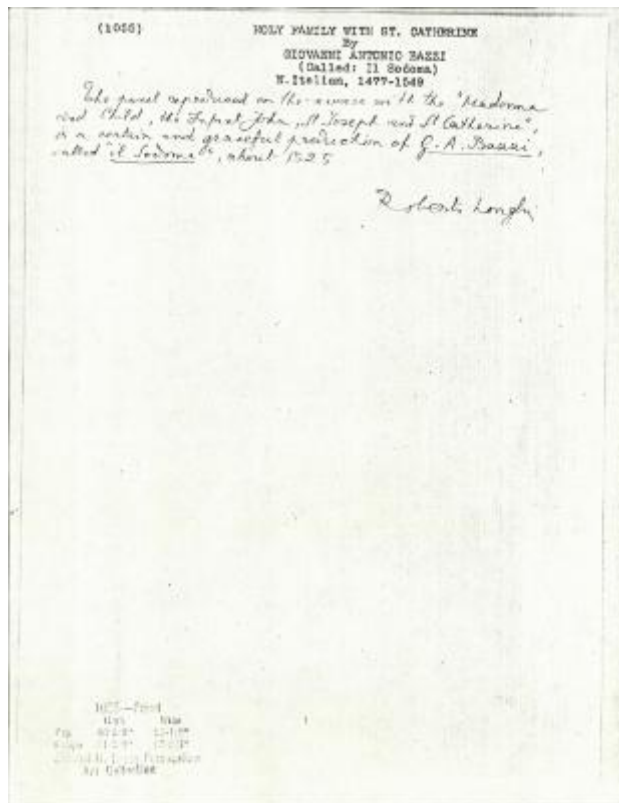 (1055)
HOLY FAMILY WITH ST. CATHERINE
By
GIOVANNI ANTONIO BAZZI
(Called: Il Sodoma)
N.Italian, 1477-1549
The panel reproduced on the reverse with the "Madonna
and Child, the Infant John, St Joseph and St Catherine",
is a certain and graceful production of G. A. Bazzi,
called "il Sodoma", about 1525
Roberto Longhi
High Wide
Art Collection